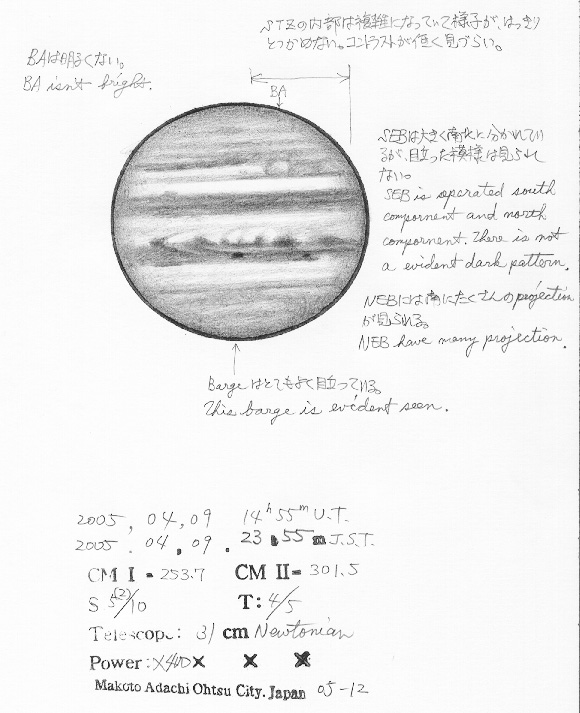 STZの内部は複雑になっていて様子が、はっきり
とつかめない。コントラストが低く見づらい。
BAは明るくない。
BA isn't bright.
BA
SEBは大きく南北に分かれてい
るが、目立った模様は見られ
ない。
SEB is separated south
compornent and north
compornent. There is not
a evident dark pattern.
NEBには南にたくさんのprojection
が見られる。
NEB have many projection.
Bargeはとてもよく目立っている。
This barge is evident seen.
2005, 04, 09 14h 55m U.T.
2005. 04. 09. 23h 55m J.S.T.
CM I = 253.7 CM II= 301.5
S 5/10 T: 4/5
Telescope: 31 cm Newtonian
Power: ×400× × ×
Makoto Adachi Ohtsu City. Japan 05-12